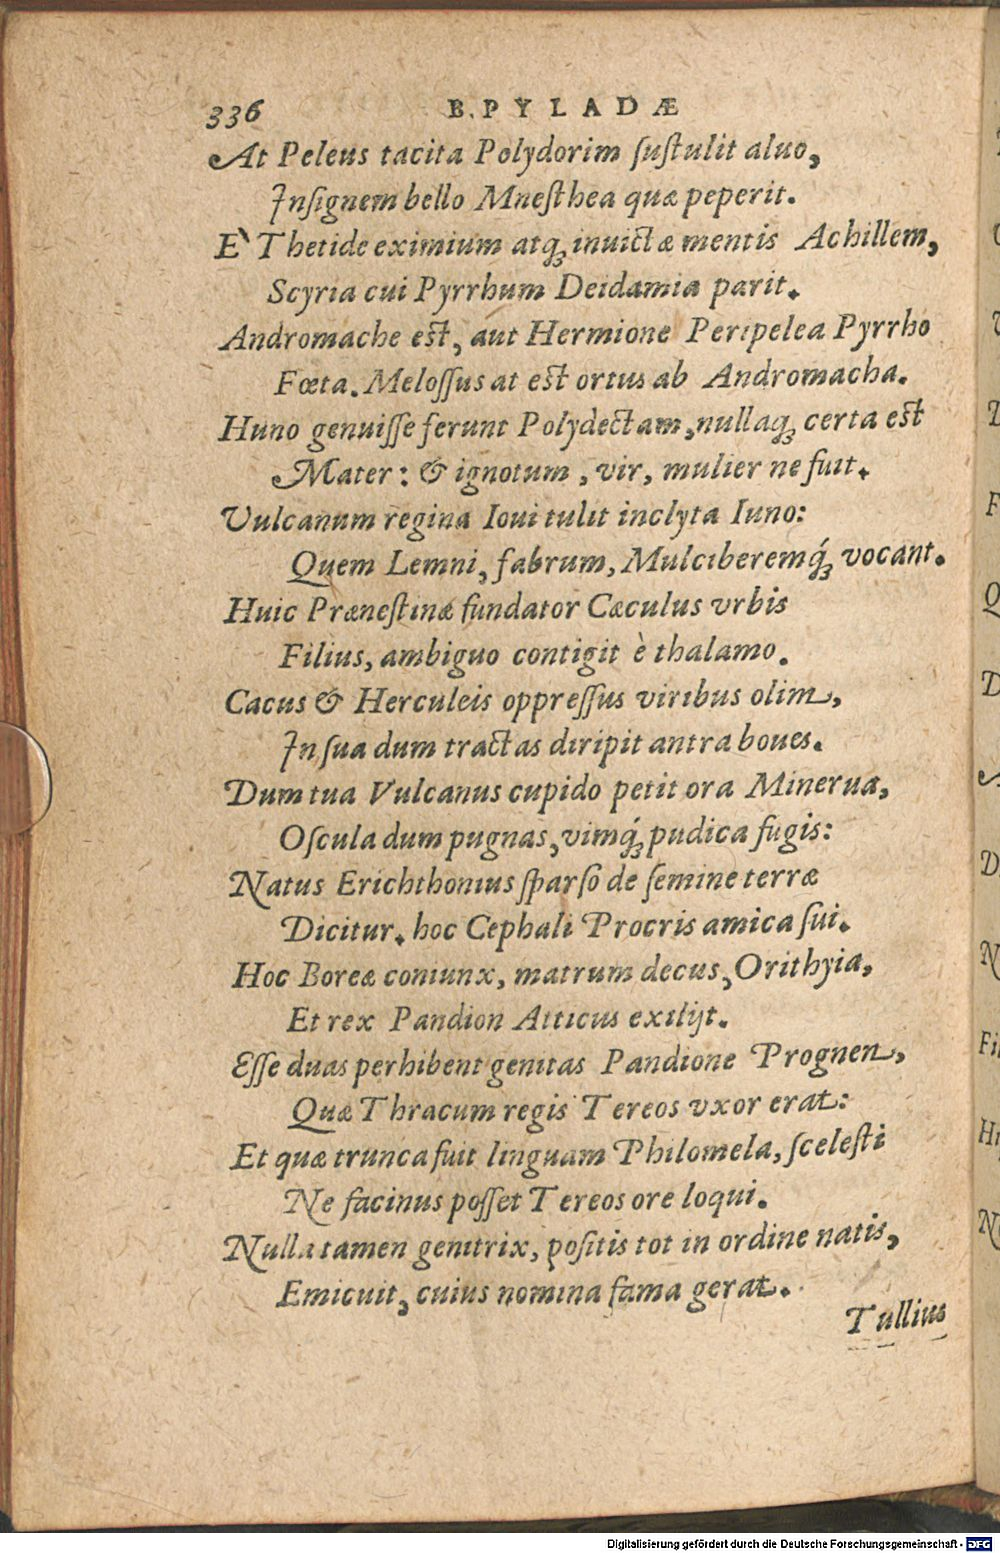 336 B. PYLADÆ
At Peleus tacita Polydorim ſuſtulit aluo,
Inſignem bello Mneſthea quæ peperit.
E` Thetide eximium atq; inuictæ mentis Achillem,
Scyria cui Pyrrhum Deidamia parit.
Andromache eſt, aut Hermione Peripelea Pyrrho
Fœta. Meloſſus at eſt ortus ab Andromacha.
Huno genuiſſe ferunt Polydectam, nullaq; certa eſt
Mater: & ignotum, vir, mulier ne fuit.
Vulcanum regina Ioui tulit inclyta Iuno:
Quem Lemni, fabrum, Mulciberemq́; vocant.
Huic Præneſtinæ fundator Cæculus vrbis
Filius, ambiguo contigit è thalamo.
Cacus & Herculeis oppreſſus viribus olim,
In ſua dum tractas diripit antra boues.
Dum tua Vulcanus cupido petit ora Minerua,
Oſcula dum pugnas, vimq́; pudica fugis:
Natus Erichthonius ſparſo de ſemine terræ
Dicitur. hoc Cephali Procris amica ſui.
Hoc Boreæ coniunx, matrum decus, Orithyia,
Et rex Pandion Atticus exilijt.
Eſſe duas perhibent genitas Pandione Prognen,
Quæ Thracum regis Tereos vxor erat:
Et quæ trunca fuit linguam Philomela, ſceleſti
Ne facinus poſſet Tereos ore loqui.
Nulla tamen genitrix, poſitis tot in ordine natis,
Emicuit, cuius nomina fama gerat.
Tullius
Digitalisierung gefördert durch die Deutsche Forschungsgemeinschaft - DFG